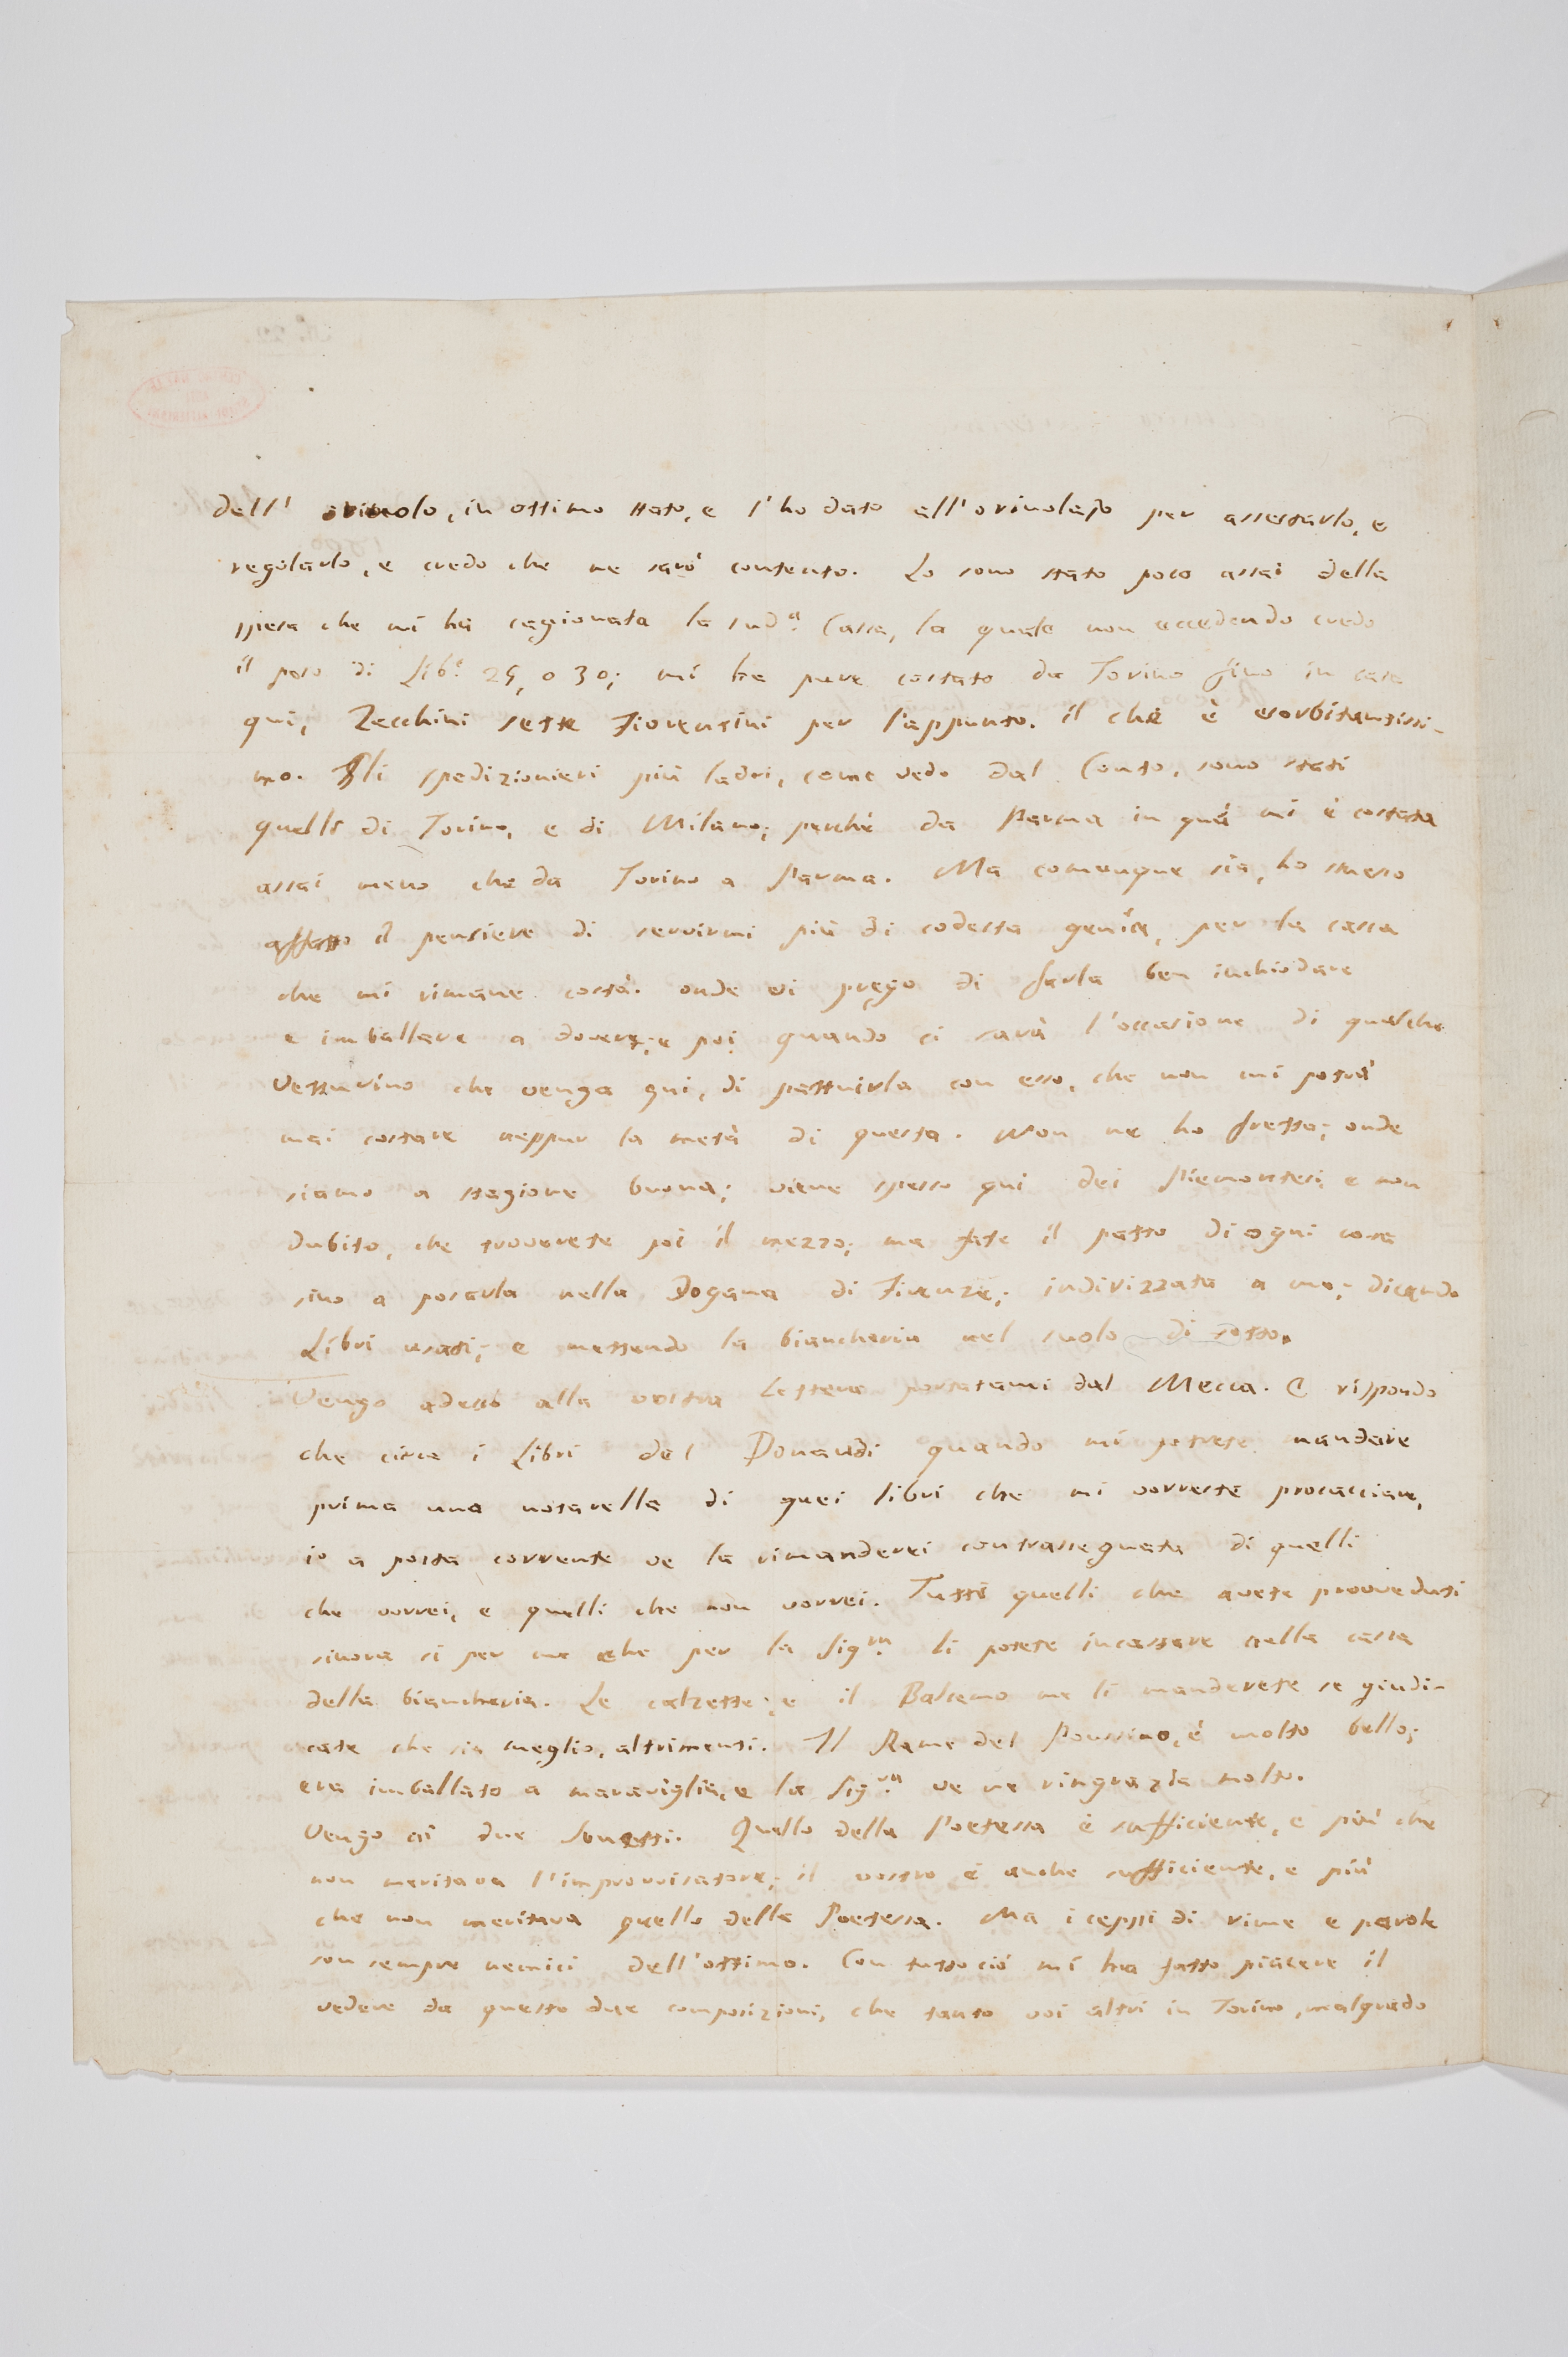 dell' orivolo, in ottimo stato, e l'ho dato all'orivolajo per assestarlo, e
regolarlo, e credo che ne sarò contento. Lo sono stato poco assai della
spesa che mi ha cagionata la sud.ª Cassa, la quale non eccedendo credo
il peso di Lib.e 25, o 30; mi ha pure costato da Torino fino in casa
qui, Zecchini sette Fiorentini per l'appunto. il che è esorbitantissi-
mo. Gli spedizionieri più ladri, come vedo dal Conto, sono stati
quelli di Torino, e di Milano; perchè da Parma in quà mi è costata
assai meno che da Torino a Parma. Ma comunque sia, ho smesso
affatto il pensiere di servirmi più di codesta genìa, per la cassa
che mi rimane costà. onde vi prego di farla ben inchiodare
e imballare a dovere; e poi quando ci sarà l'occasione di qualche
Vetturino che venga qui, di pattuirla con esso, che non mi potrà
mai costare neppur la metà di questa. Non ne ho fretta; onde
siamo a stagione buona; viene spesso qui dei Piemontesi; e non
dubito, che troverete poi il mezzo; ma fate il patto di ogni cosa
sino a posarla nella Dogana di Firenze; indirizzata a me; dicendo
Libri usati; e mettendo la biancheria nel suolo di sotto.
Vengo adesso alla vostra Lettera portatami dal Mecca. E rispondo
che circa i Libri del Donaudi quando mi potrete mandare
prima una notarella di quei libri che mi vorreste procacciare,
io a posta corrente ve la rimanderei contrassegnata di quelli
che vorrei, e quelli che non vorrei. Tutti quelli che avete provveduti
sinora sì per me che per la Sig.ra li potete incassare nella cassa
della biancheria. Le calzette; e il Balsamo me li manderete se giudi-
cate che sia meglio, altrimenti. Il Rame del Poussino, è molto bello;
era imballato a maraviglia, e la Sig.ra ve ne ringrazia molto.
Vengo ai due Sonetti. Quello della Poetessa è sufficiente, e più che
non meritava l'improvvisatore; il vostro è anche sufficiente, e più
che non meritava quello della Poetessa. Ma i ceppi di rime e parole
son sempre nemici dell'ottimo. Con tutto ciò mi ha fatto piacere il
vedere da queste due composizioni, che tanto voi altri in Torino, malgrado